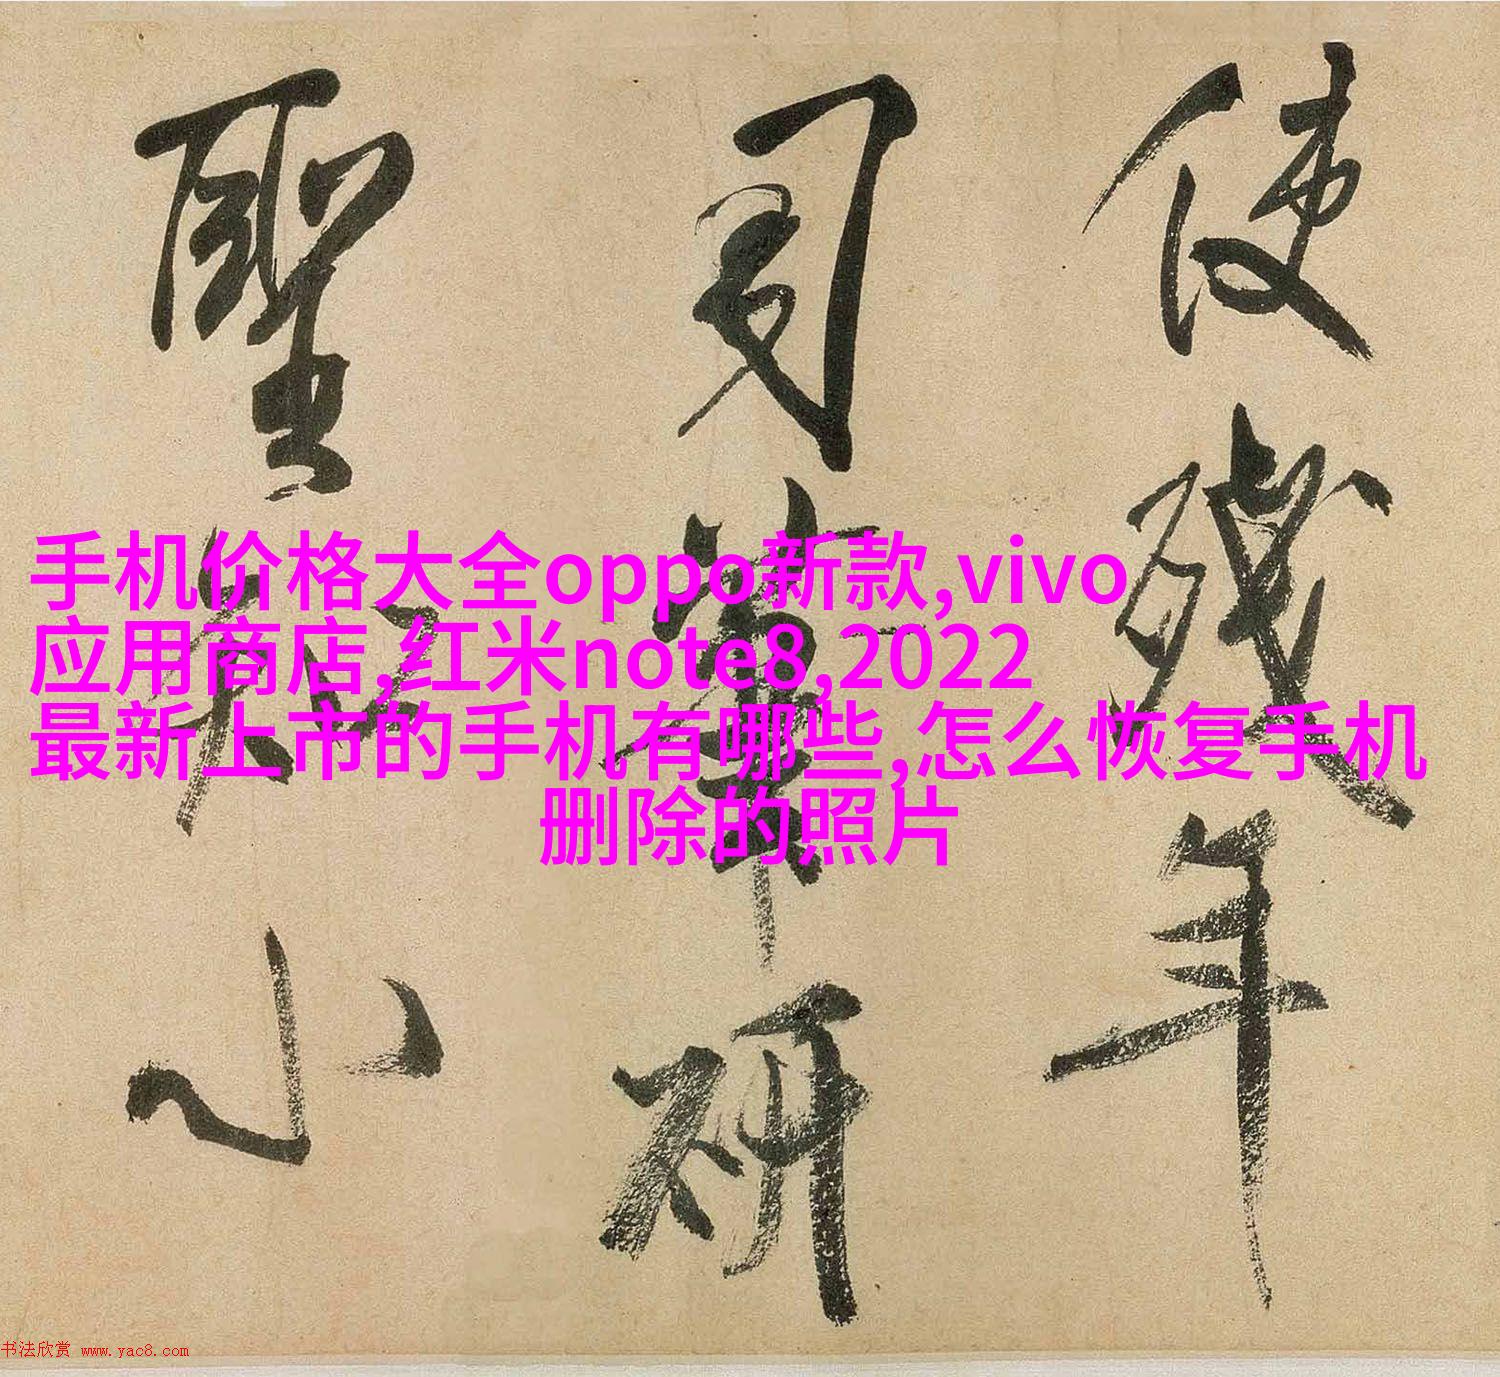 使殘年
司筆研
聖知小
手机价格大全oppo新款,vivo
应用商店,红米note8,2022
最新上市的手机有哪些,怎么恢复手机
删除的照片
书法欣赏 www.yac8.com